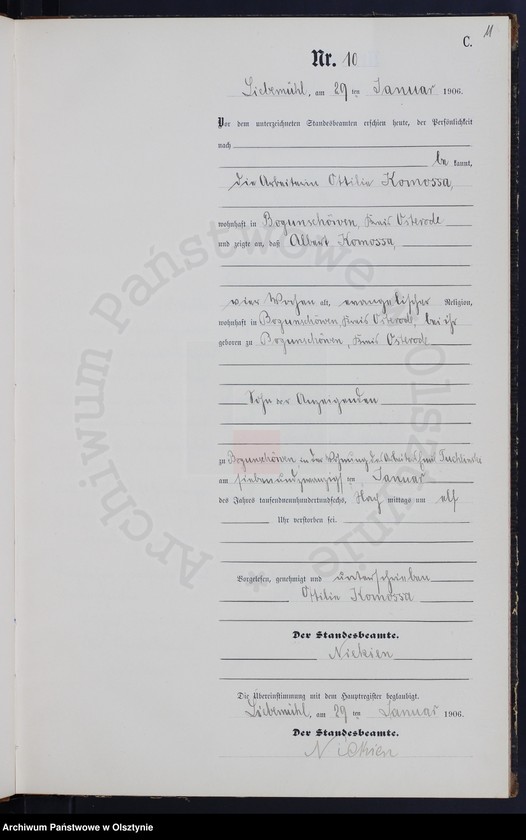 11
C.
Nr. 10
Liebemühl, am 29 ten Januar 1906.
Vor dem unterzeichneten Standesbeamten erschien heute, der Persönlichkeit
nach
be kannt,
die Arbeiterin Ottilie Komossa,
wohnhaft in Bogunschöwen, Kreis Osterode
und zeigte an, daß Albert Komossa,
vier Wochen alt, evangelischer Religion,
wohnhaft in Bogunschöwen, Kreis Osterode, bei ihr
geboren zu Bogunschöwen, Kreis Osterode
Sohn der Anzeigenden
zu Bogunschöwen in der Wohnung des Arbeiters
am siebenundzwanzigsten Januar
des Jahres tausendneunhundertundsechs, Nach mittags um elf
Uhr verstorben sei.
Vorgelesen, genehmigt und unterschrieben
Ottilie Komossa
Der Standesbeamte.
Nickien
Die Übereinstimmung mit dem Hauptregister beglaubigt.
Liebemühl, am 29 ten Januar 1906.
Der Standesbeamte.
Nickien
Archiwum Państwowe w Olsztynie *
Archiwum Państwowe w Olsztynie